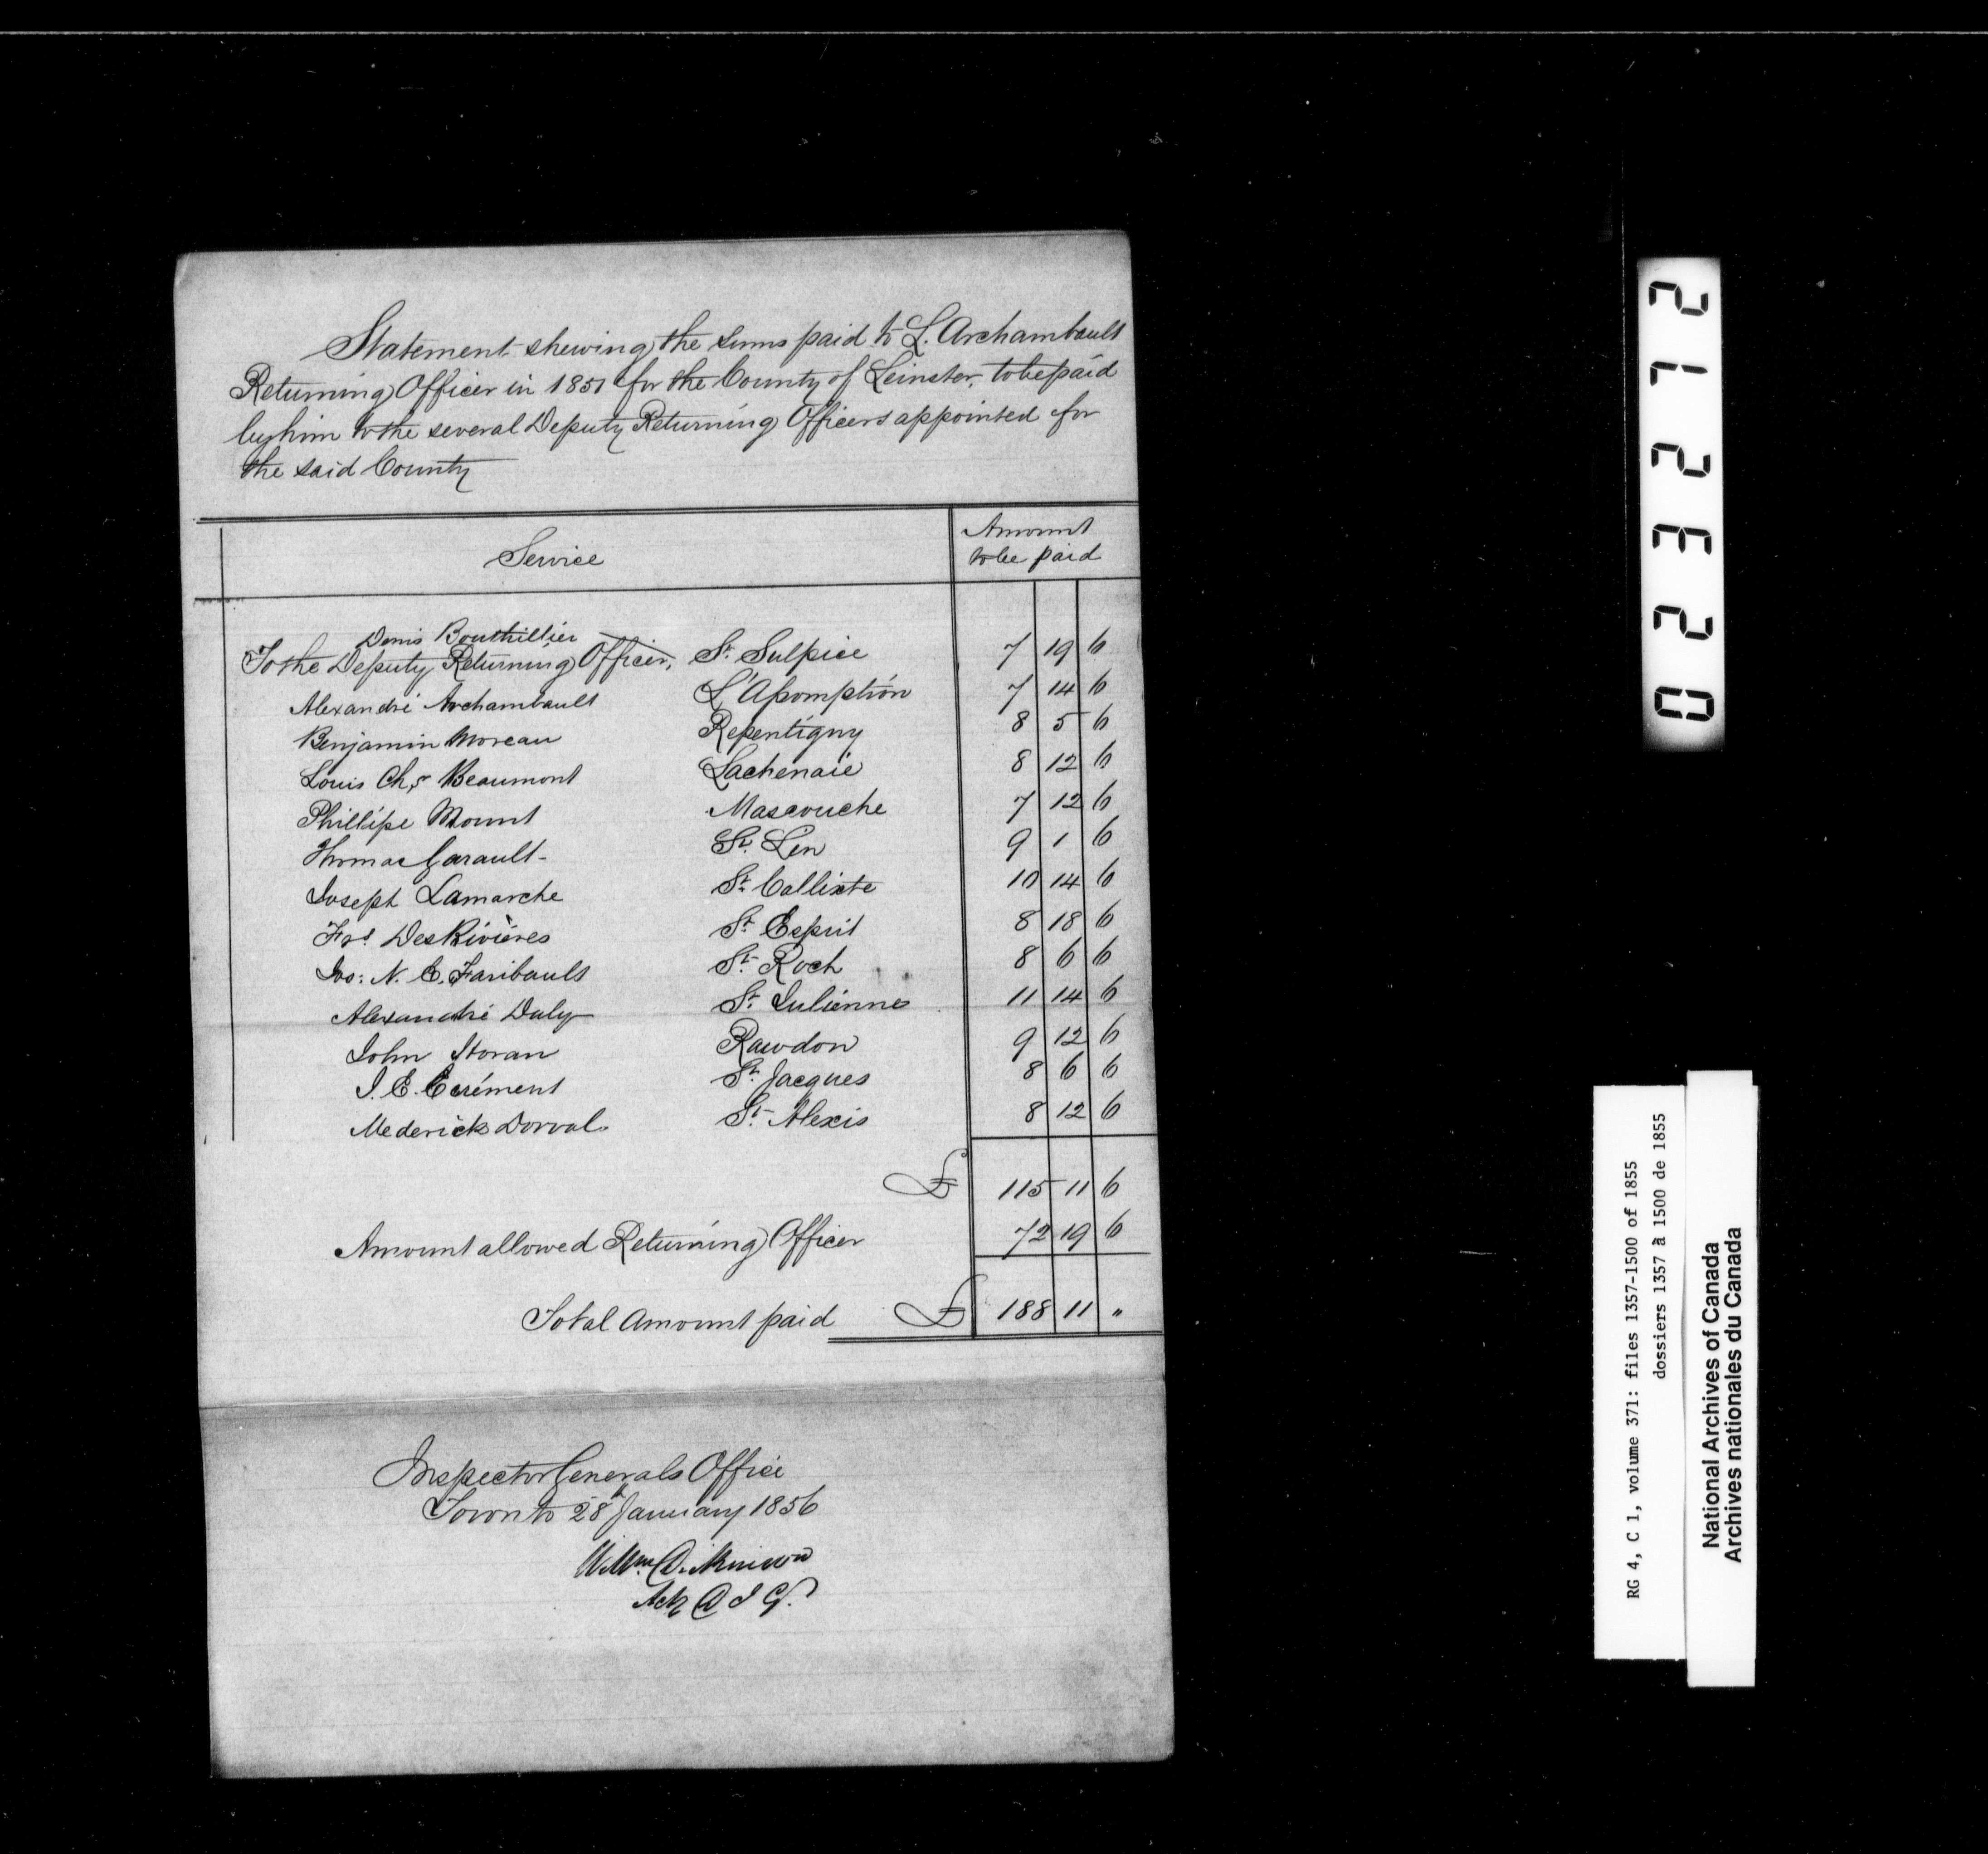 Statement shewing the sums paid to L. Archambault
Returning Officer in 1851 for the County of Leinster, to be paid
by him to the several Deputy Returning Officers appointed for
the said County
Service
Amount
to be paid
Denis Bouthillier
To the Deputy Returning Officer, St. Sulpice 7 19 6
Alexandre Archambault L'Assomption 7 14 6
Benjamin Moreau Repentigny 8 5 6
Louis Chs Beaumont Lachenaie 8 12 6
Phillipe Mount Mascouche 7 12 6
Thomas Garault St. Len 9 1 6
Joseph Lamarche St. Callixte 10 14 6
Frs DesRivières St. Esprit 8 18 6
Jos: N. E. Faribault St. Roch 8 6 6
Alexandre Daly St. Julienne 11 14 6
John Horan Rawdon 9 12 6
J. E. Ecrément St. Jacques 8 6 6
Mederick Dorval St. Alexis 8 12 6
£ 115 11 6
Amount allowed Returning Officer 72 19 6
Total Amount paid £ 188 11 "
Inspector Generals Office
Toronto 28th January 1856
Act D I G.
023212
RG 4, C 1, volume 371: files 1357-1500 of 1855
dossiers 1357 à 1500 de 1855
National Archives of Canada
Archives nationales du Canada